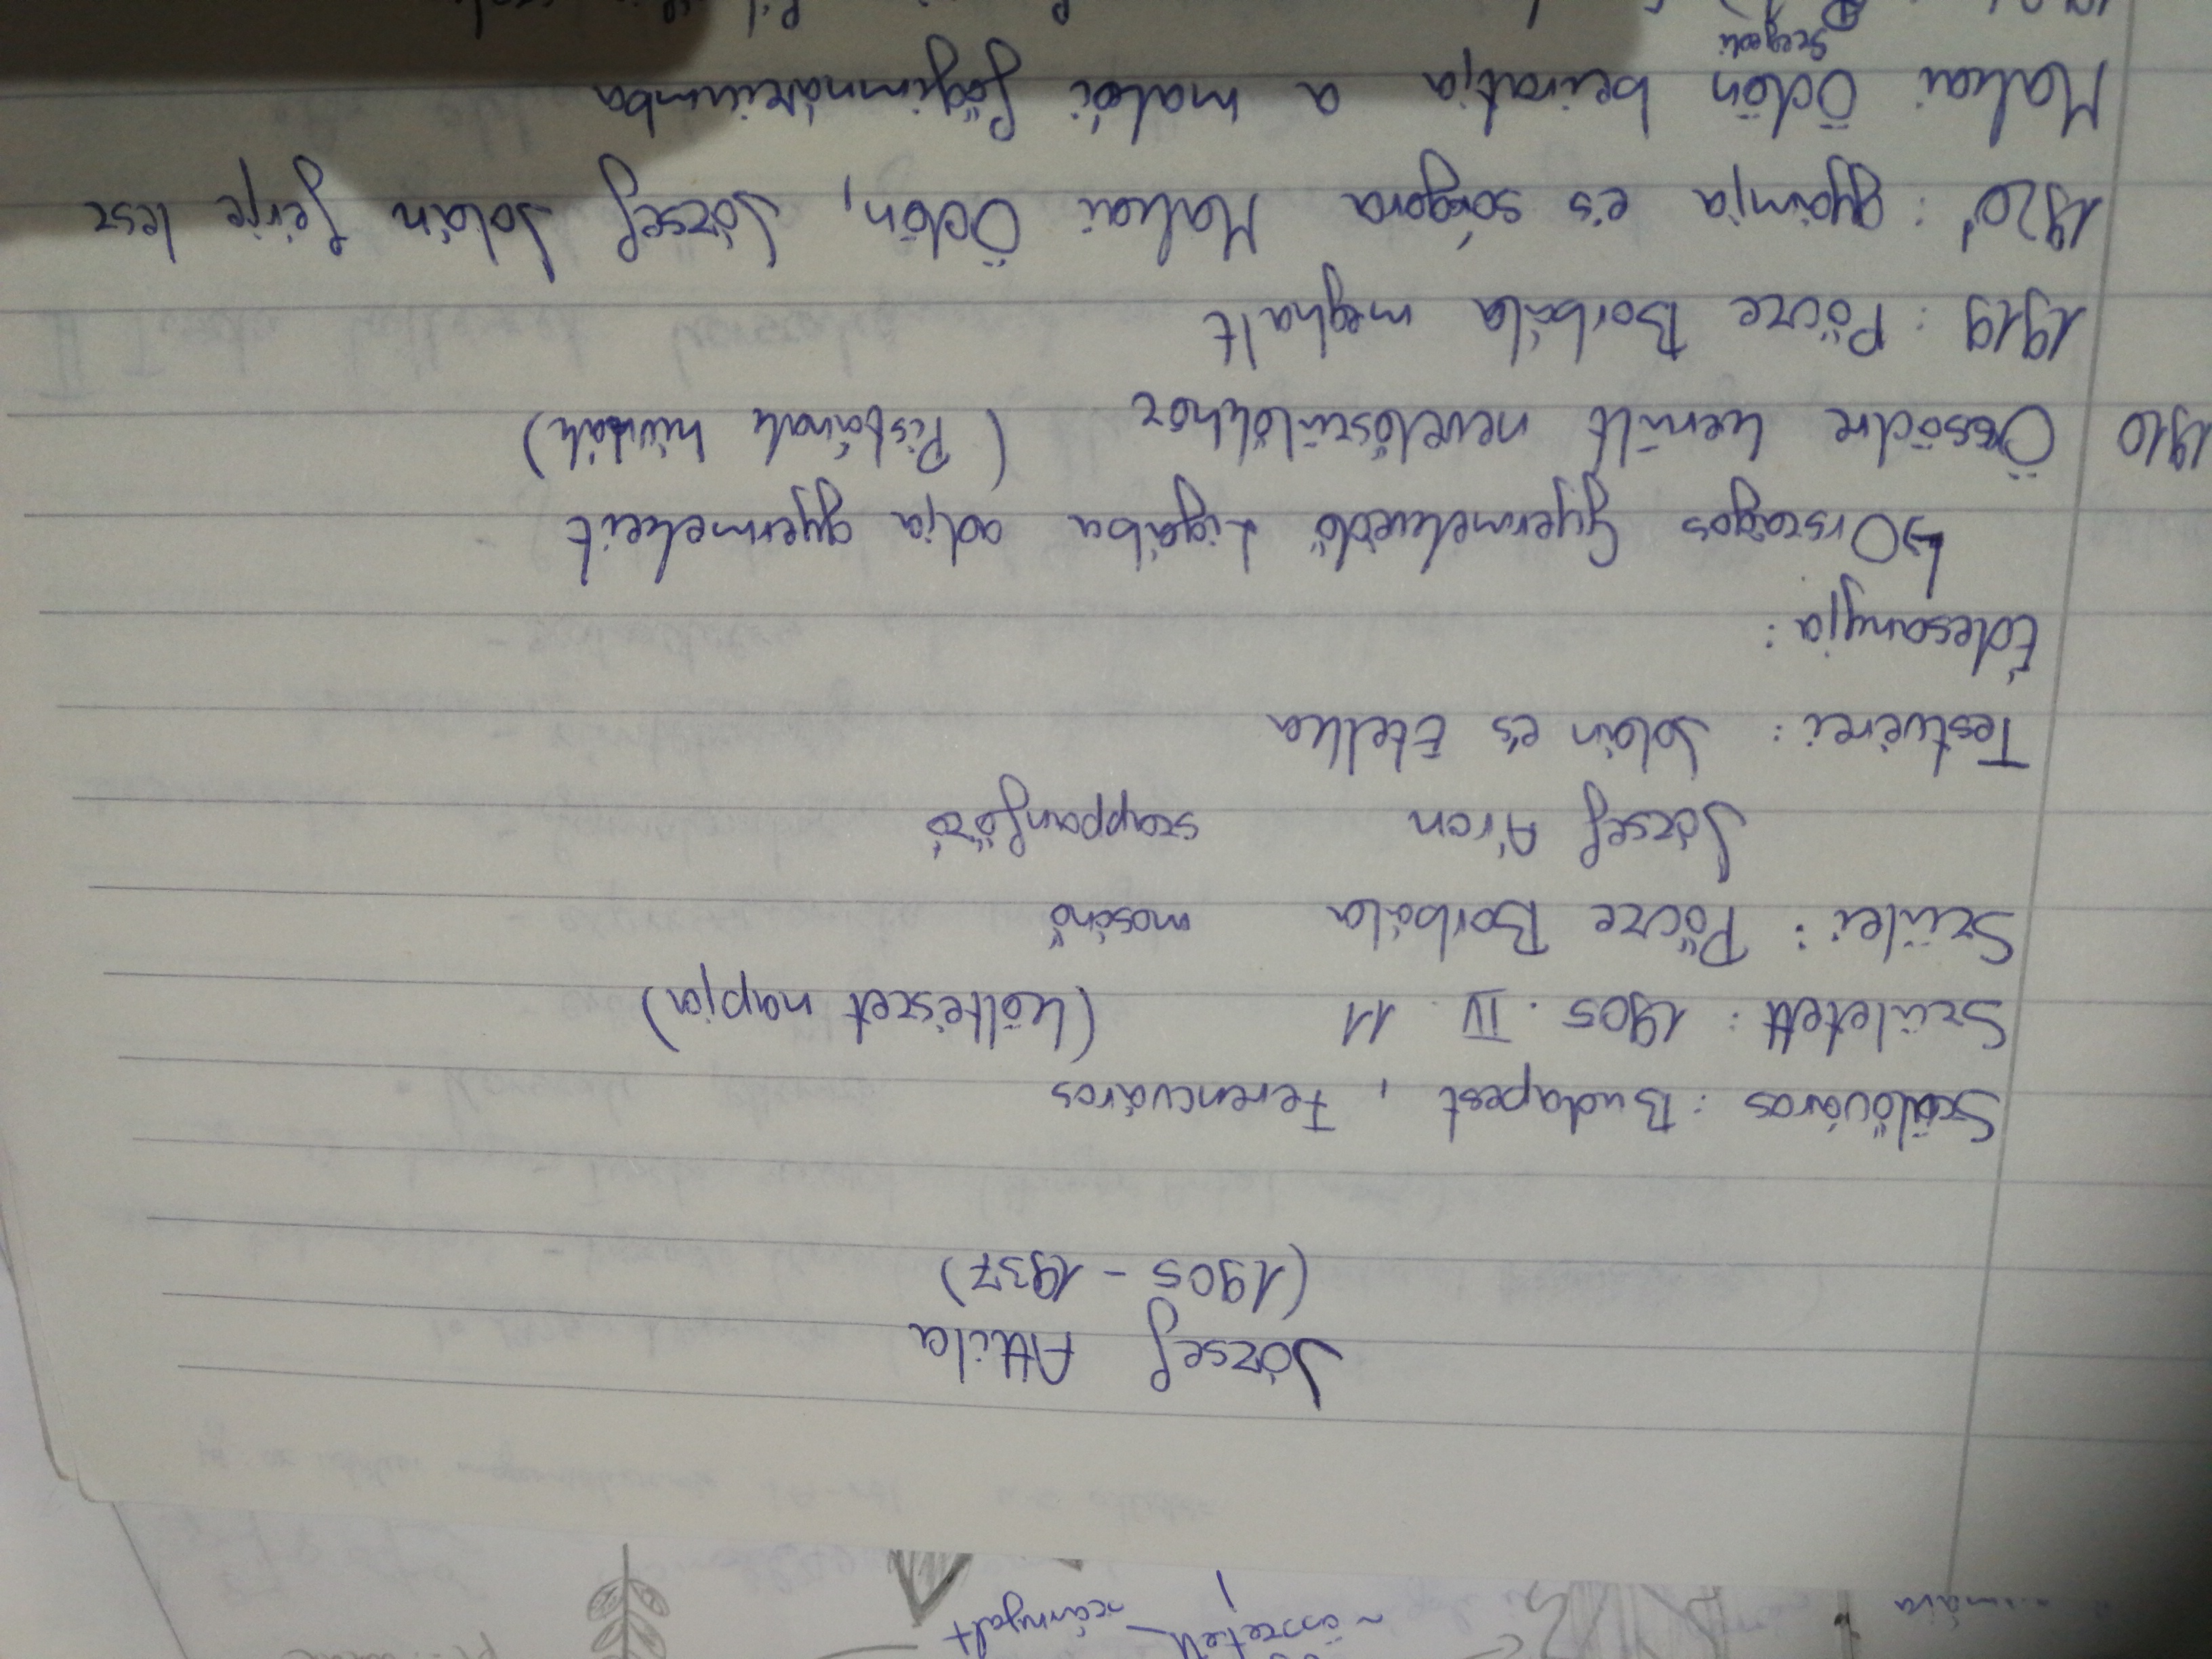 József Attila
(1905 - 1937)
Szülőváros: Budapest, Ferencváros
Született: 1905. IV. 11 (költészet napja)
Szülei: Pőcze Borbála mosónő
József Áron szappanfőző
Testvérei: Jolán és Etelka
Édesanyja:
↳ Országos Gyermekvédő Ligába adja gyermekeit
1910 Öcsödre került nevelőszülőkhöz (Pistának hívták)
1919: Pőcze Borbála meghalt
1920: gyámja és sógora Makai Ödön, József Jolán férje lesz
Makai Ödön beíratja a makói főgimnáziumba
Szegedi
~ összetett
árnyalt